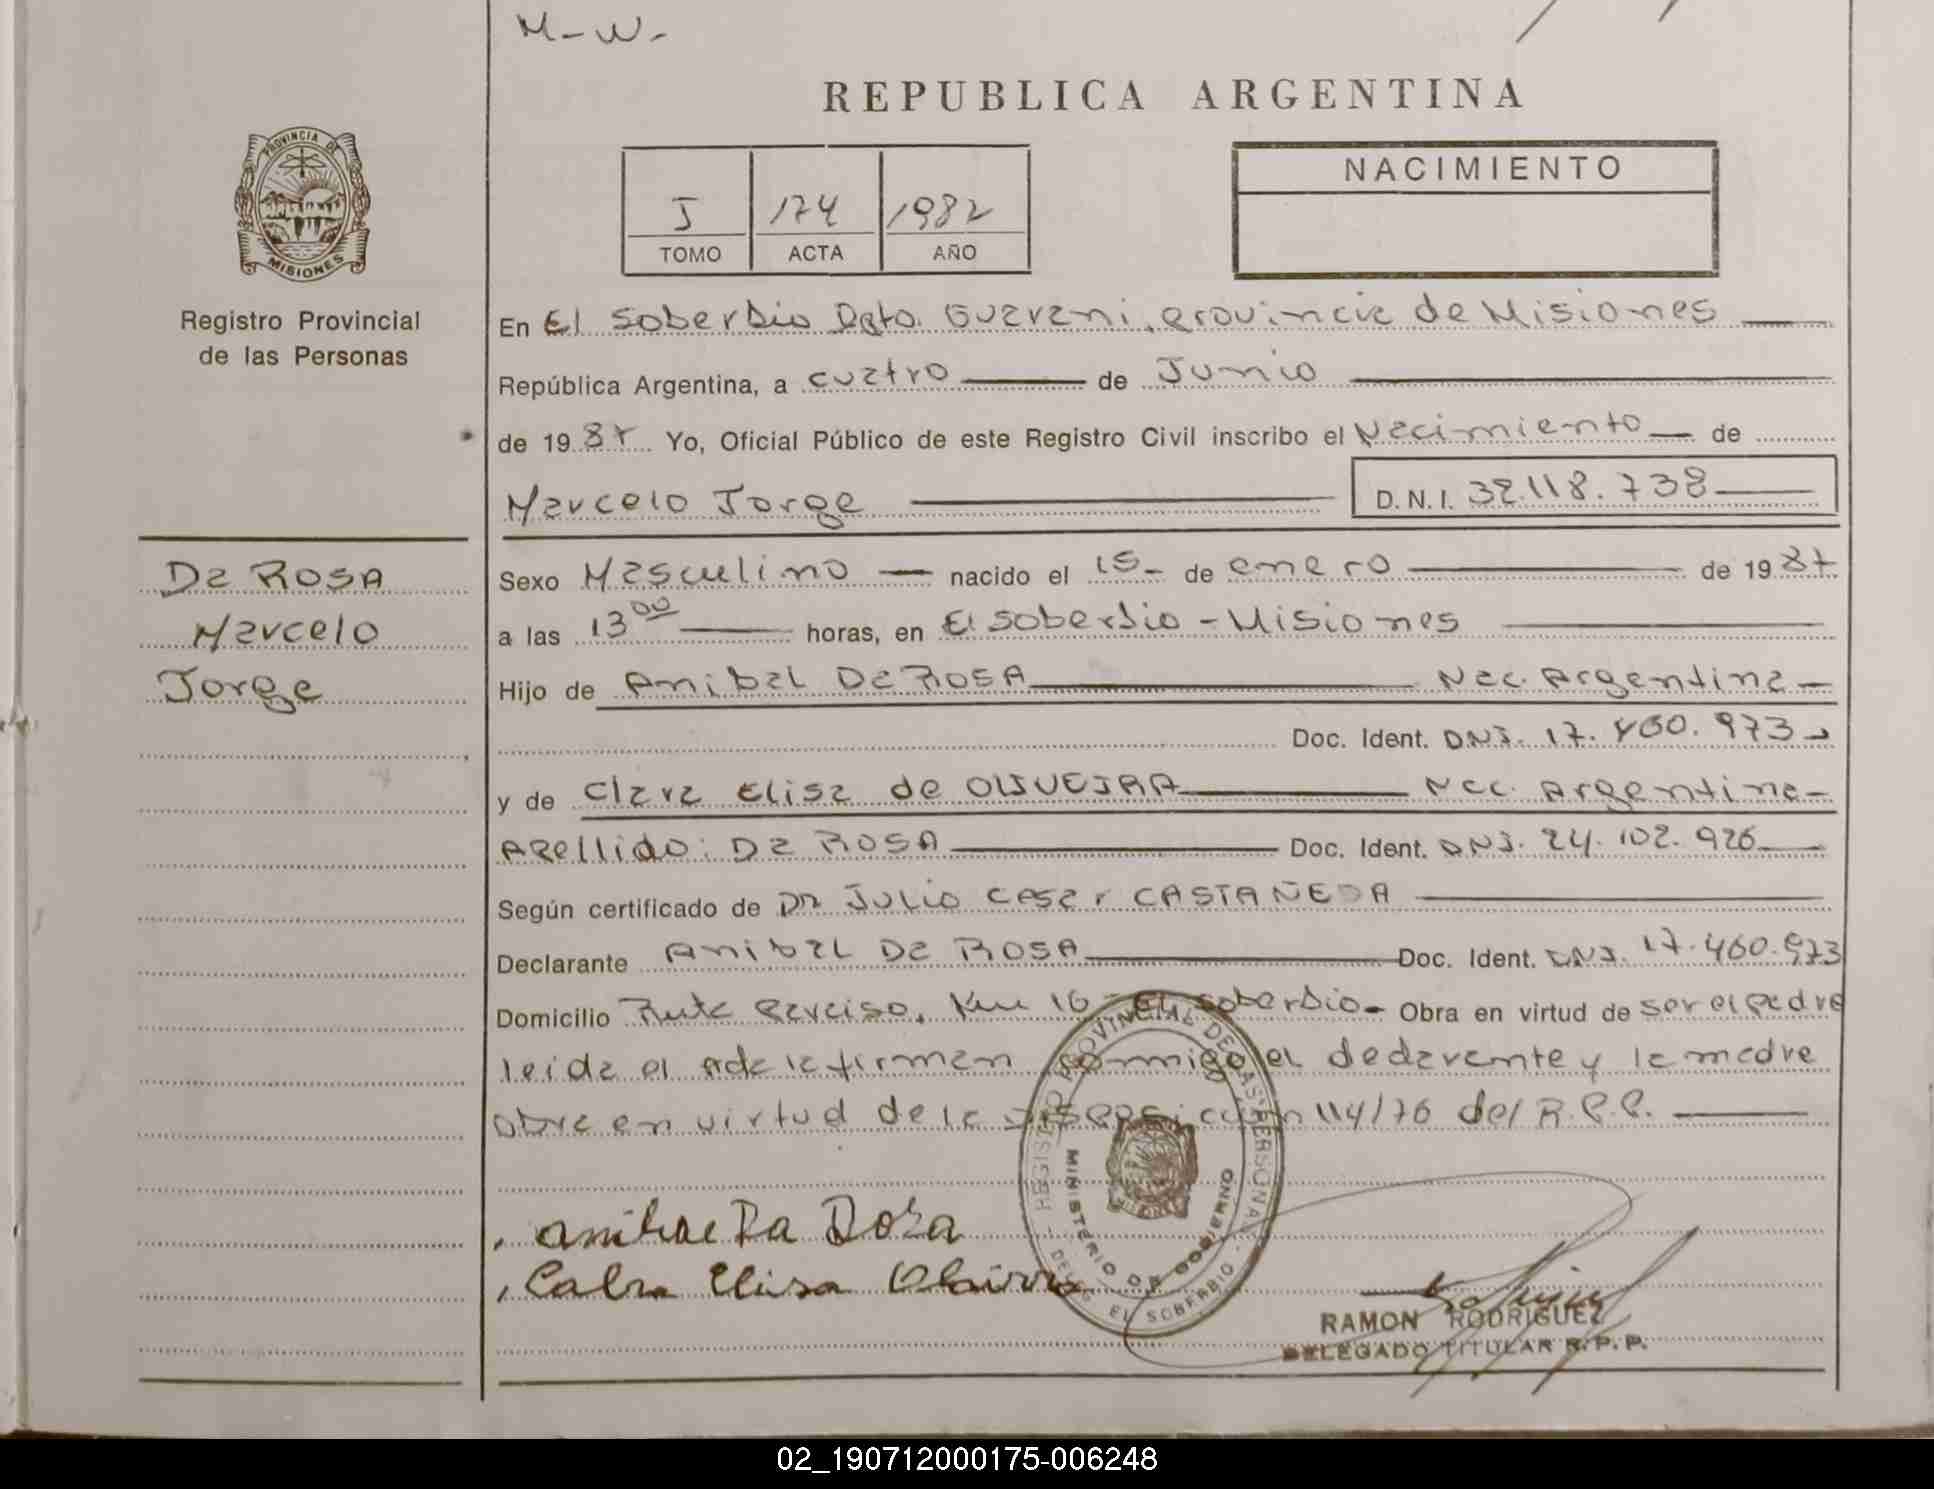 M-W-
REPUBLICA ARGENTINA
PROVINCIA DE
MISIONES
Registro Provincial
de las Personas
I 174 1987
TOMO ACTA AÑO
NACIMIENTO
En El Soberbio Dpto. Guarani, provincia de Misiones
República Argentina, a cuatro de Junio
de 1987 Yo, Oficial Público de este Registro Civil inscribo el Nacimiento de
Marcelo Jorge D.N.I. 32.118.738
Da ROSA
Marcelo
Jorge
Sexo Masculino nacido el 15- de enero de 1987
a las 13 00 horas, en El Soberbio - Misiones
Hijo de Anibal Da ROSA Nac. Argentina
Doc. Ident. DNI. 17.460.973
y de Clara Elisa de OLIVEIRA Nac. Argentina
Apellido: Da ROSA Doc. Ident. DNI. 24.102.926
Según certificado de Dr Julio Cesar CASTAÑEDA
Declarante Anibal Da ROSA Doc. Ident. DNI. 17.460.973
Domicilio Ruta Km 16 - El Soberbio - Obra en virtud de ser el padre
leida el Acta la firman conmigo el declarante y la madre
obra en virtud de la Disposicion 114/76 del R.P.P.
REGISTRO PROVINCIAL DE LAS PERSONAS
MINISTERIO DE GOBIERNO
DELEG. EL SOBERBIO
Anibal Da Rosa
Calra Elisa
RAMON RODRIGUEZ
DELEGADO TITULAR R.P.P.
02_190712000175-006248